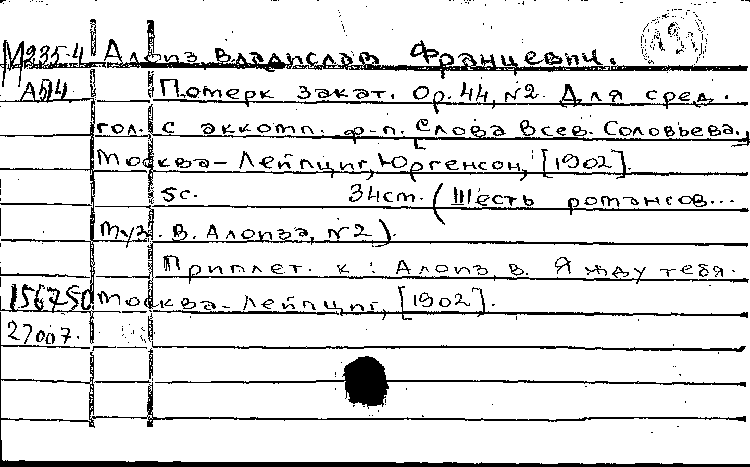 М235-4 Алоиз, Владислав Францевич.
А514 Померк закат. Op. 44, №2. Для сред.
гол. с аккомп. ф-п. [Слова Всев. Соловьева.,
Москва-Лейпциг, Юргенсон, [1902].
5с. 34см. (Шесть романсов...
муз. В. Алоиза, №2).
Приплет. к: Алоиз, В. Я жду тебя.
156750 Москва-Лейпциг, [1902].
27007.